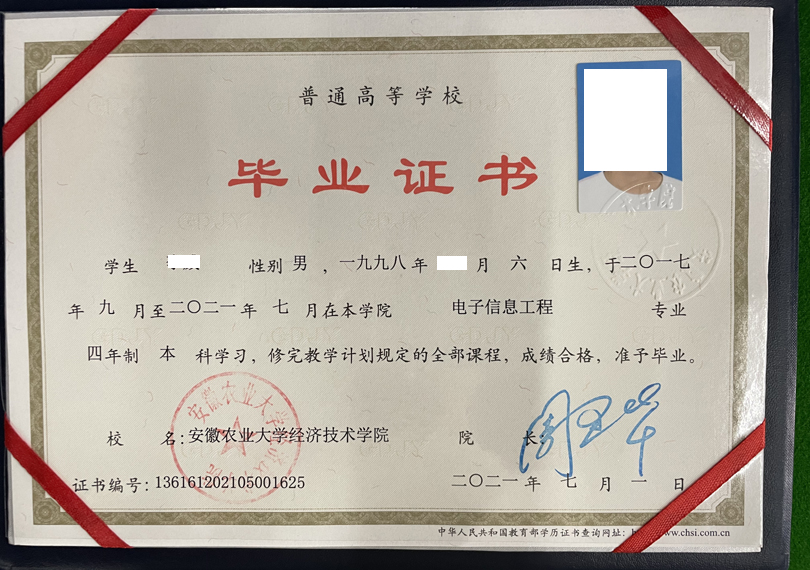 普通高等学校
毕业证书
学生 性别 男 ，一九九八 年 月 六 日生，于二〇一七
年 九 月至二〇二一年 七 月在本学院 电子信息工程 专业
四年制 本 科学习，修完教学计划规定的全部课程，成绩合格，准予毕业。
校 名：安徽农业大学经济技术学院 院 长：
证书编号：136161202105001625 二〇二一 年 七 月 一 日
中华人民共和国教育部学历证书查询网址：www.chsi.com.cn